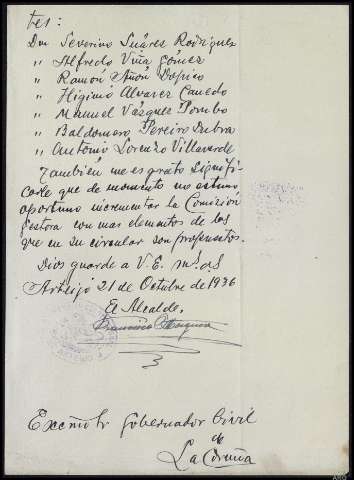 tes:
Don Severino Suárez Rodríguez
" Alfredo Viña Gómez
" Ramón Añón
" Higinio Alvarez Canedo
" Manuel Vázquez Pombo
" Baldomero Pereiro Dubra
" Antonio Lorenzo Villaverde
También me es grato signifi-
carle que de momento no estimo
oportuno incrementar la Comisión
Gestora con mas elementos de los
que en su circular son propuestos.
Dios guarde a V.E. ms. as
Arteijo 21 de Octubre de 1936
El Alcalde,
Francisco
Excmo Sr Gobernador Civil
de
La Coruña